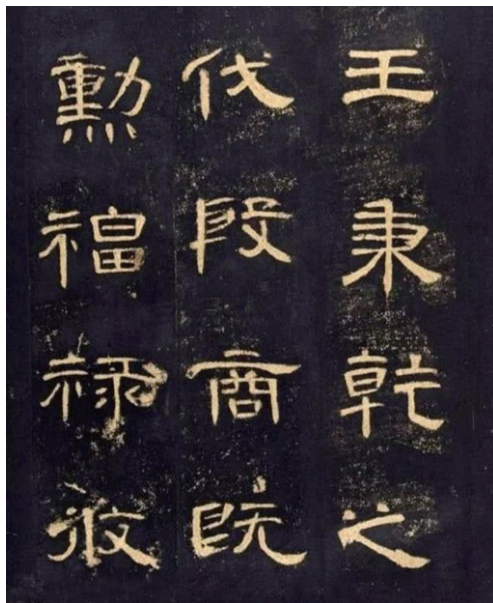 王秉乾之
伐殷商既
勳福祿攸